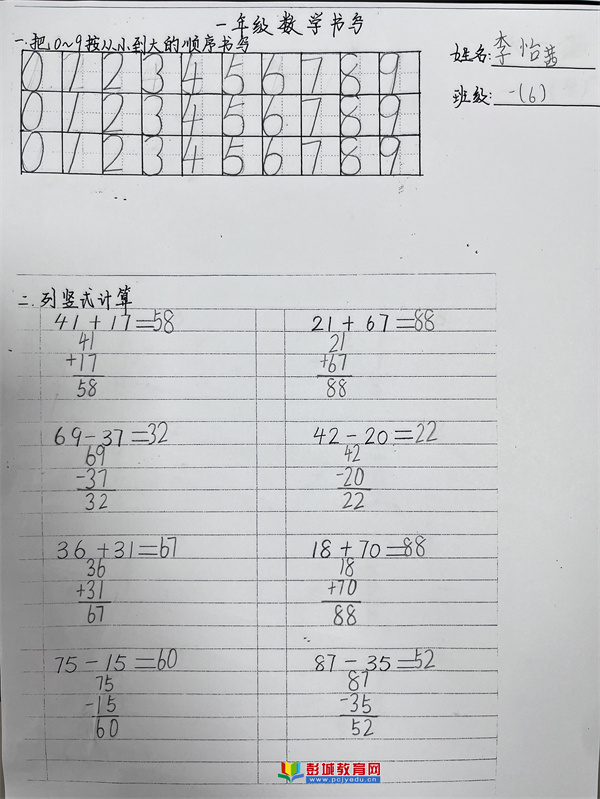 一年级数学书写
一.把0~9按从小到大的顺序书写
姓名:李怡茜
班级:一(6)
0 1 2 3 4 5 6 7 8 9
0 1 2 3 4 5 6 7 8 9
0 1 2 3 4 5 6 7 8 9
二.列竖式计算
41+17=58
41
+17
58
21+67=88
21
+67
88
69-37=32
69
-37
32
42-20=22
42
-20
22
36+31=67
36
+31
67
18+70=88
18
+70
88
75-15=60
75
-15
60
87-35=52
87
-35
52
彭城教育网
www.pcjyedu.cn